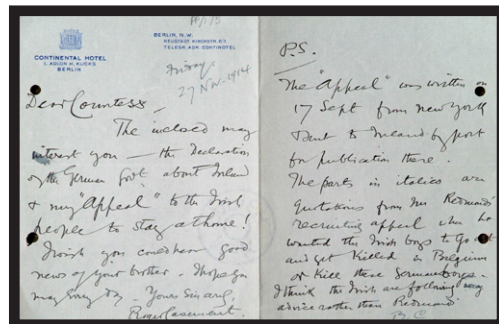 PP/175
CONTINENTAL HOTEL
L. ADLON H. KLICKS
BERLIN
BERLIN, N.W.
NEUSTADT. KIRCHSTR. 6/7.
TELEGR. ADR. CONTINOTEL
Friday
27 Nov. 1914
Dear Countess,
The inclosed may
interest you — the Declaration
of the German Govt about Ireland
& my "Appeal" to the Irish
people to stay at home!
I wish you could hear good
news of your brother. I hope you
may some day. Yours sincerely,
Roger Casement.
P.S.
The "Appeal" was written on
17 Sept from New York
& sent to Ireland by post
for publication there.
The parts in italics are
quotations from Mr Redmond's
recruiting appeal when he
wanted the Irish boys to go out
and get killed in Belgium
or kill these German boys.
I think the Irish are following my
advice rather than Redmond
R.C